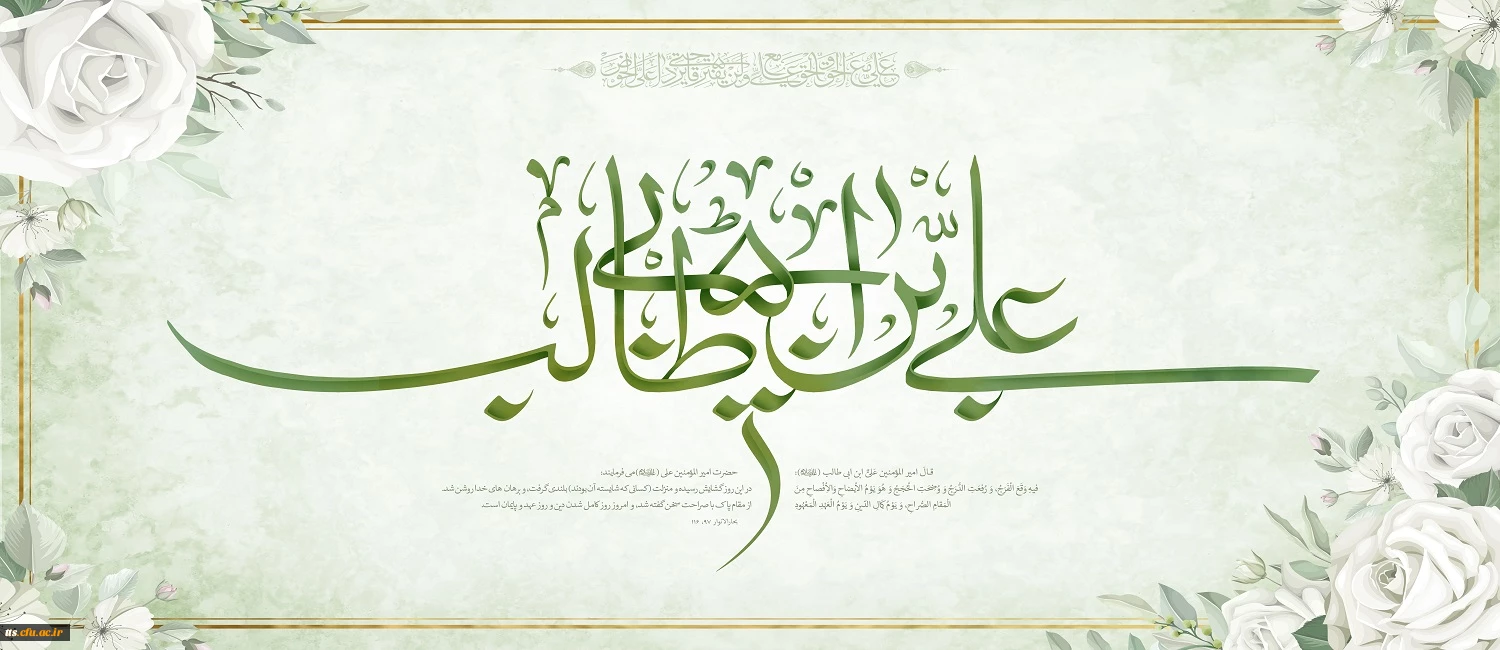 علي مع الحق والحق مع علي ولن يفترقا حتى يردا على الحوض
علي بن ابي طالب
قال امیر المؤمنین عَلیّ ابن ابی طالب (علیه‌السلام):
فیهِ وَقَعَ الْفَرَجُ، وَ رُفِعَتِ الدَّرَجُ وَ وُضِحَتِ الْحُجَجُ وَ هُوَ یَوْمُ الْأیضاحِ وَالْأفْصاحِ مِنَ
الْمَقامِ الصُّراحِ، وَ یَوْمُ کَمالِ الدّینِ وَ یَوْمُ الْعَهْدِ الْمَعْهُودِ
حضرت امیر المؤمنین علی (علیه‌السلام) می فرمایند:
در این روز گشایش رسیده و منزلت (کسانی که شایسته آن بودند) بلندی گرفت، و برهان های خدا روشن شد.
از مقام پاک با صراحت سخن گفته شد، و امروز روز کامل شدن دین و روز عهد و پایمان است.
بحارالانوار ۹۷، ۱۱۶
as.cfu.ac.ir